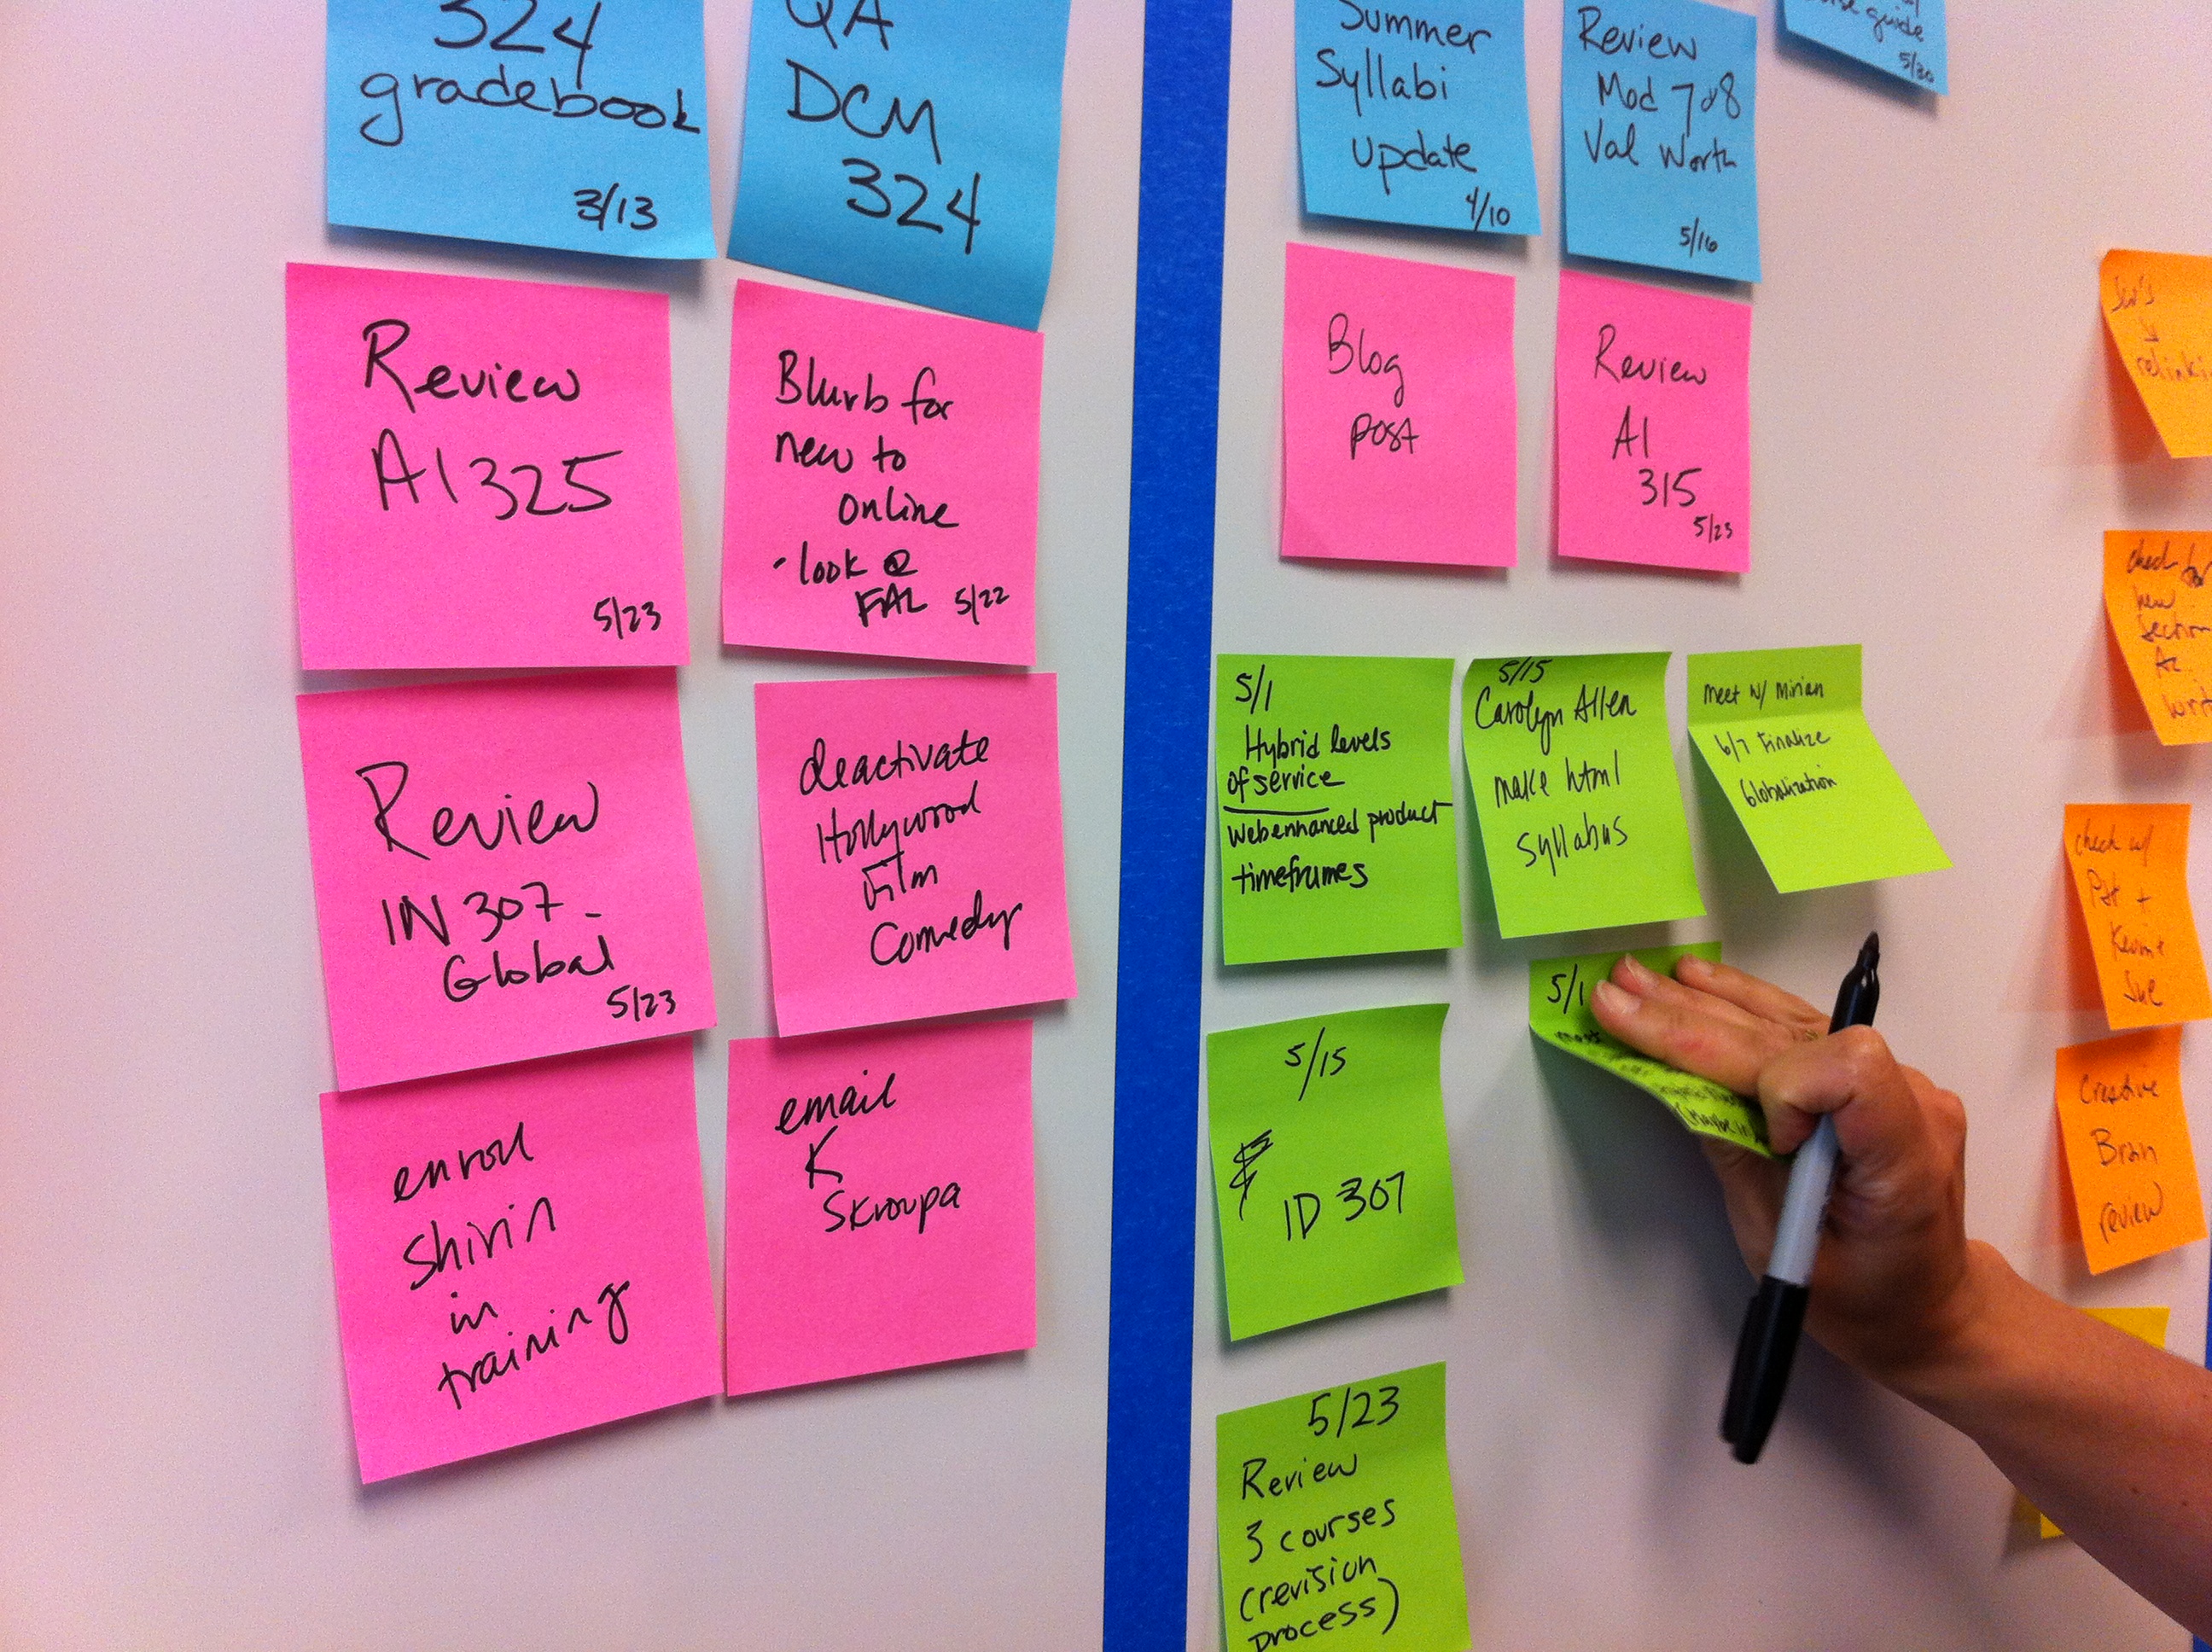 324
gradebook
3/13
QA
DCM
324
Review
AI 325
5/23
Blurb for
new to
online
- look @
FAL 5/22
Review
IN 307 -
Global
5/23
deactivate
Hollywood
Film
Comedy
enroll
Shirin
in
training
email
K
Skroupa
Summer
Syllabi
update
4/10
Review
Mod 7 & 8
Val Worth
5/16
guide
5/30
Blog
post
Review
AI
315
5/23
5/1
Hybrid levels
of service
Web enhanced product
timeframes
5/15
Carolyn Allen
make html
syllabus
meet w/ Mirian
6/7 Finalize
Globalization
5/1
5/15
ID 307
5/23
Review
3 courses
(revision
process)
check for
new
Section
check w/
Pat +
Kevin +
Sue
Creative
Brain
review